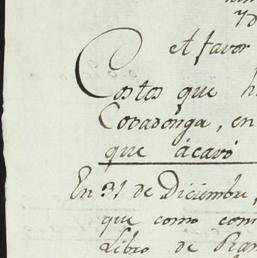 A favor
Costos que h
Cobadonga, en
que acavó
En 31 de Diciembre,
que como com
Libro de Ram